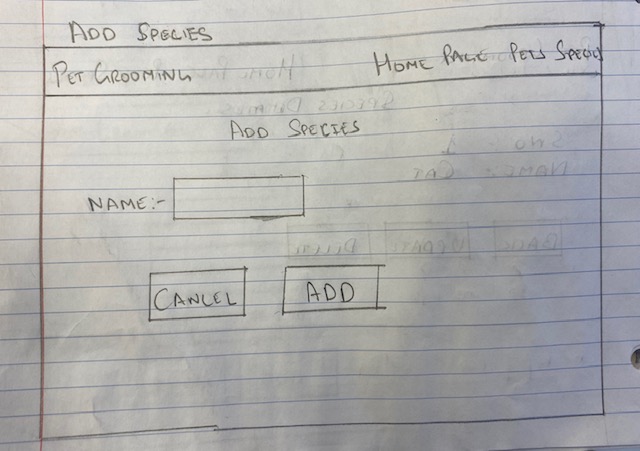 ADD SPECIES
PET GROOMING HOME PAGE PETS SPECIES
ADD SPECIES
NAME:-
CANCEL ADD